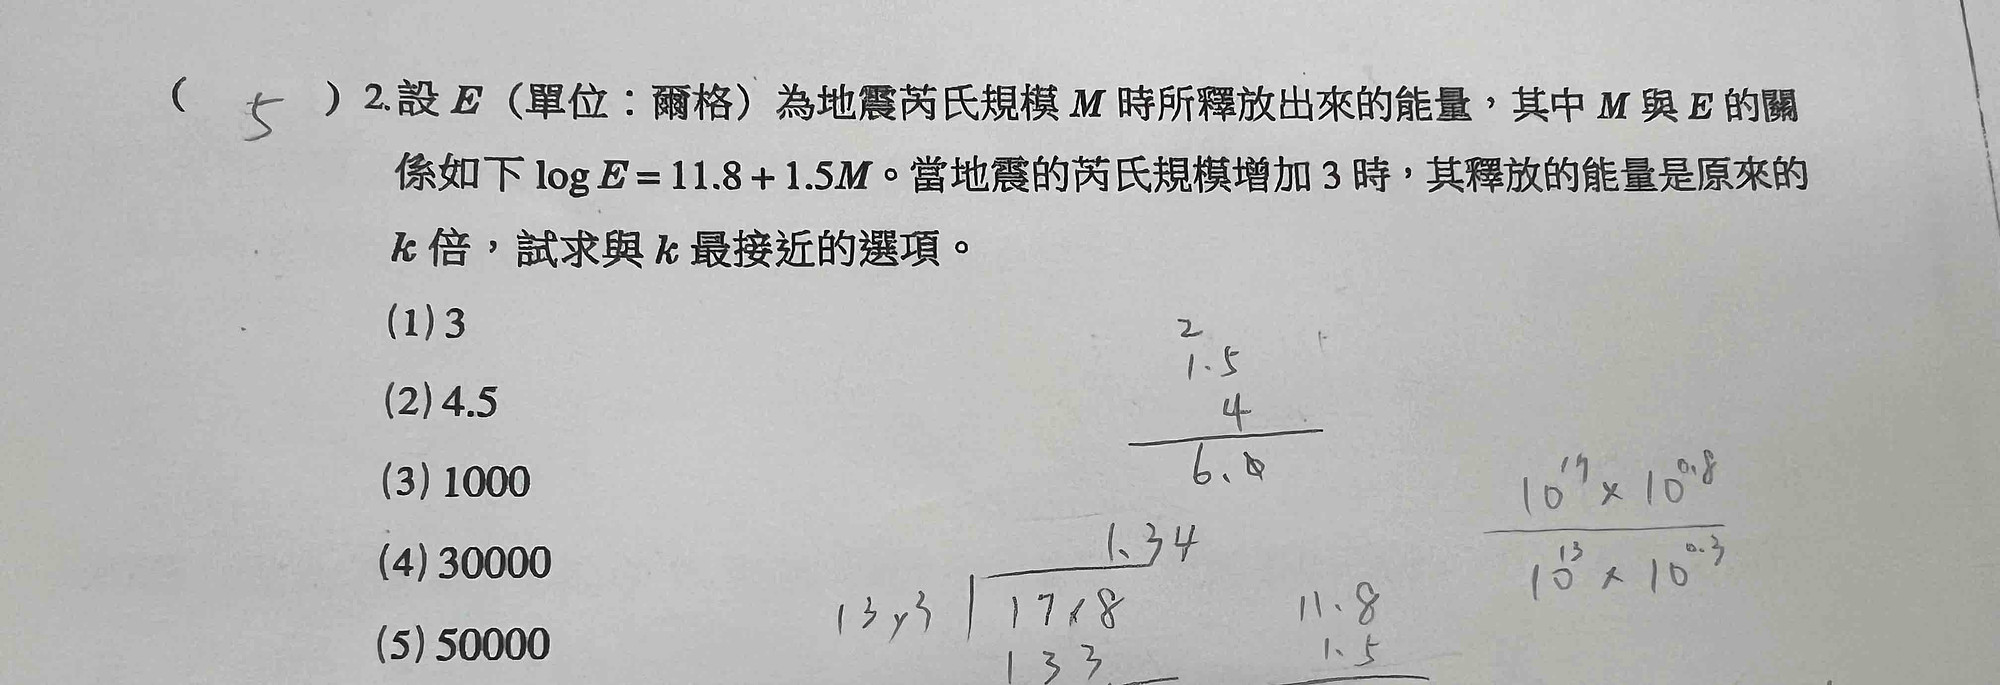 ( 5 ) 2.設 E(單位:爾格)為地震芮氏規模 M 時所釋放出來的能量,其中 M 與 E 的關
係如下 log E = 11.8 + 1.5M。當地震的芮氏規模增加 3 時,其釋放的能量是原來的
k 倍,試求與 k 最接近的選項。
(1) 3
(2) 4.5
(3) 1000
(4) 30000
(5) 50000
2
1.5
4
6.0
1.34
13,3 17.8
133
11.8
1.5
10^17 × 10^0.8
10^13 × 10^0.3